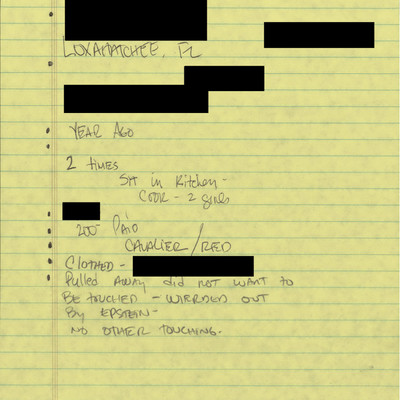 LOXAHATCHEE, FL
YEAR AGO
2 times
Sit in Kitchen -
COOK - 2 girls
200- PAID
CAVALIER/RED
CLOTHED -
Pulled AWAY did NOT WANT to
BE touched - WIERDED OUT
By EPSTEIN -
NO OTHER TOUCHING.